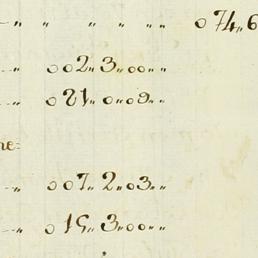 -"- " " " " 074"6
-"- 002"3"00""
-"- 021"0"09""
ne=
-"- 007"2"03""
-"- 019"3"00""